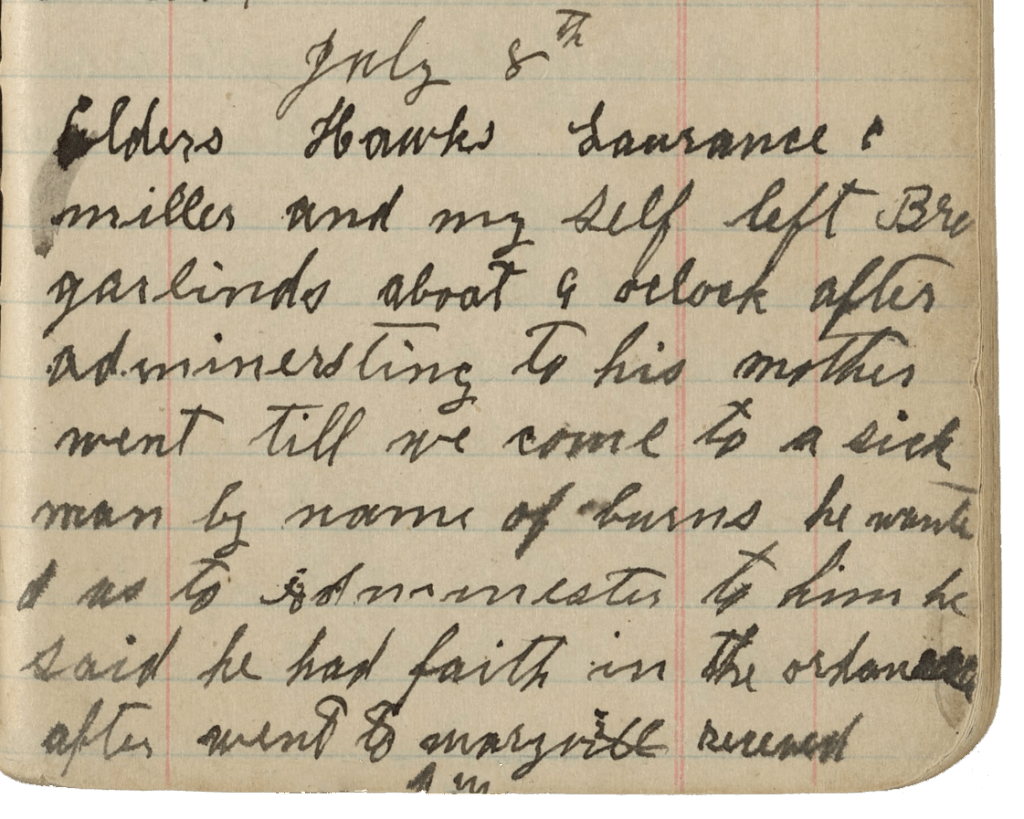 July 8th
Elders Hawks Laurance &
miller and my self left Bro
garlinds about 9 oclock after
adminersting to his mother
went till we come to a sick
man by name of burns he wante
d us to adminester to him he
said he had faith in the
after went to